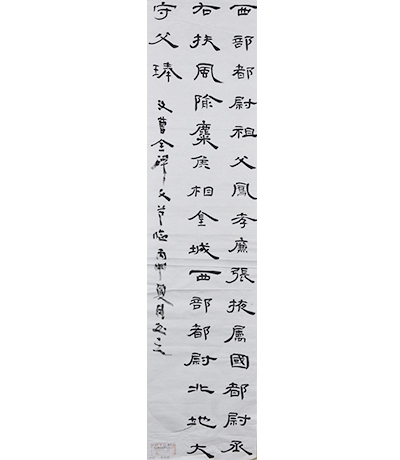 西部都尉祖父鳳孝廉張掖屬國都尉丞
右扶風隃麋侯相金城西部都尉北地大
守父琫
文曹全碑文節臨